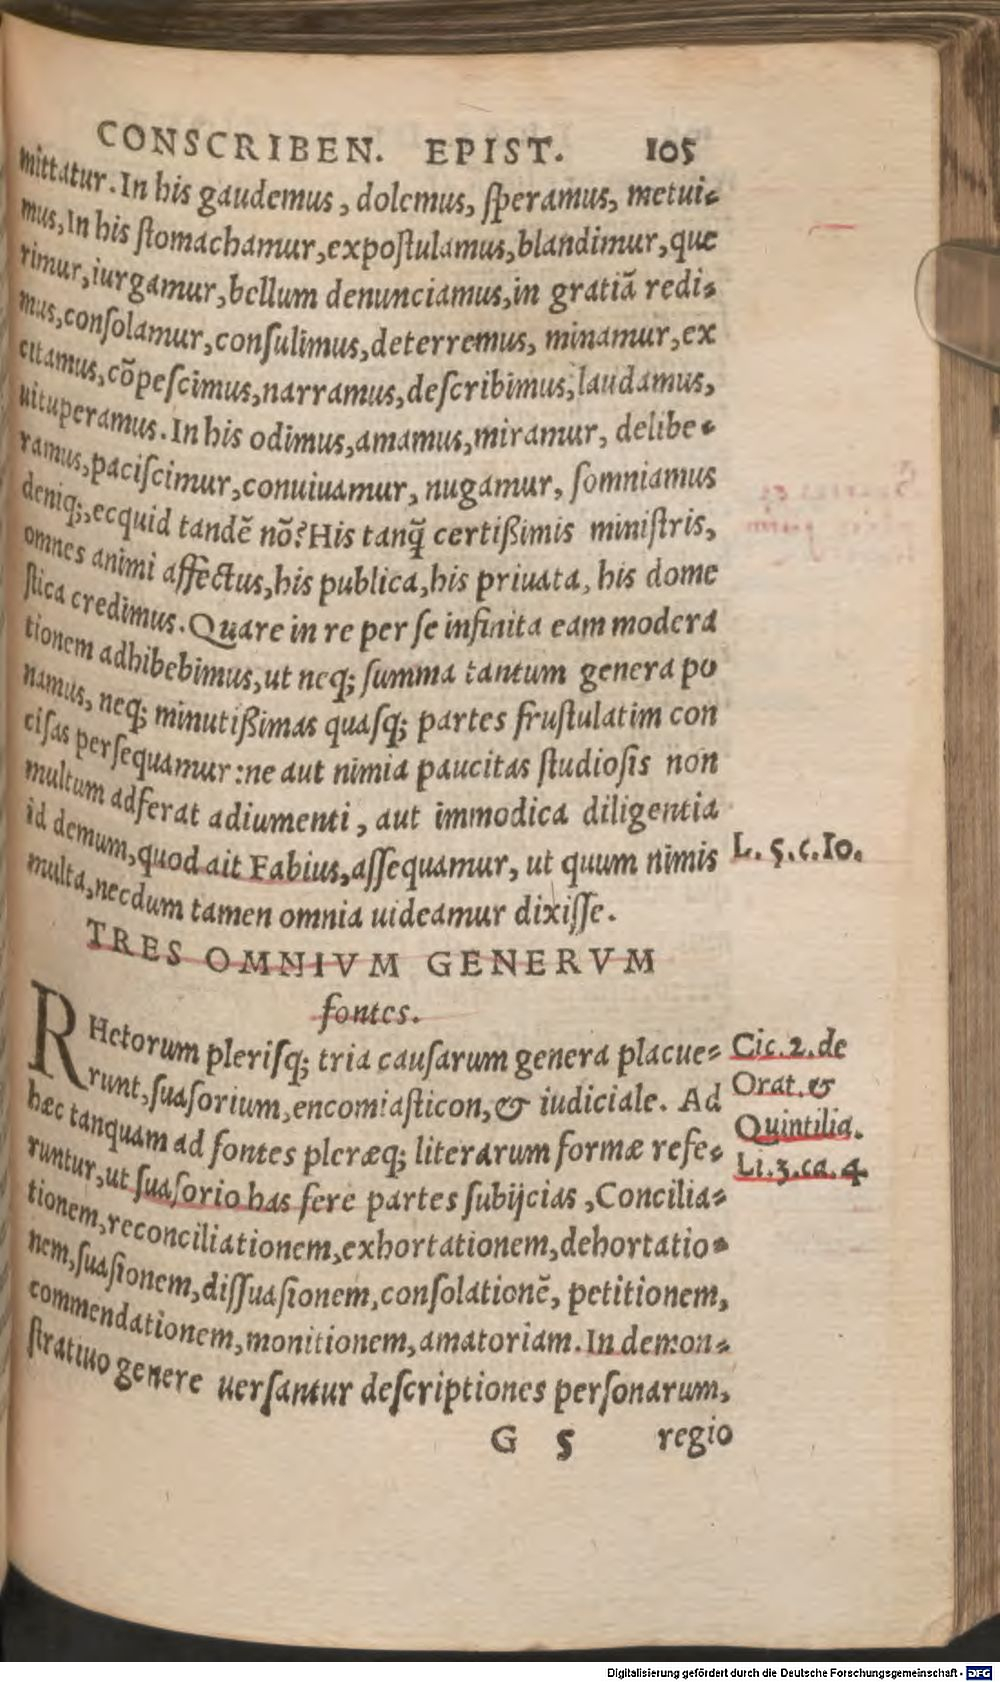 CONSCRIBEN. EPIST. 105
mittatur. In his gaudemus, dolemus, ſperamus, metui⸗
mus, In his ſtomachamur, expoſtulamus, blandimur, que
rimur, iurgamur, bellum denunciamus, in gratiã redi⸗
mus, conſolamur, conſulimus, deterremus, minamur, ex
citamus, cõpeſcimus, narramus, deſcribimus, laudamus,
uituperamus. In his odimus, amamus, miramur, delibe⸗
ramus, paciſcimur, conuiuamur, nugamur, ſomniamus
deniq;, ecquid tandẽ nõ? His tanq̃ certißimis miniſtris,
omnes animi affectus, his publica, his priuata, his dome
ſtica credimus. Quare in re per ſe infinita eam modera
tionem adhibebimus, ut neq; ſumma tantum genera po
namus, neq; minutißimas quaſq; partes fruſtulatim con
ciſas perſequamur: ne aut nimia paucitas ſtudioſis non
multum adferat adiumenti, aut immodica diligentia
id demum, quod ait Fabius, aſſequamur, ut quum nimis
L. 5.c.10.
multa, necdum tamen omnia uideamur dixiſſe.
TRES OMNIVM GENERVM
fontes.
RHetorum pleriſq; tria cauſarum genera placue⸗
runt, ſuaſorium, encomiaſticon, & iudiciale. Ad
hæc tanquam ad fontes pleræq; literarum formæ refe⸗
runtur, ut ſuaſorio has fere partes ſubijcias, Concilia⸗
tionem, reconciliationem, exhortationem, dehortatio⸗
nem, ſuaſionem, diſſuaſionem, conſolationẽ, petitionem,
commendationem, monitionem, amatoriam. In demon⸗
ſtratiuo genere uerſantur deſcriptiones perſonarum,
Cic.2.de
Orat. &
Quintilia.
Li.3.ca.4
G 5 regio
Digitalisierung gefördert durch die Deutsche Forschungsgemeinschaft - DFG